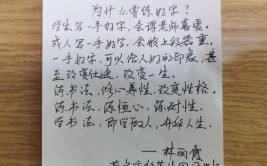 为什么要练好字?
学生写一手好字,会得老师喜爱,
成人写一手好字,会被上级器重,
一手好字,可以给人好的印象,甚
至改变仕途,改变一生.
练书法,修心养性,改变性格.
练书法,添恒心,添耐性.
练书法,即塑敌人,升华人生.
——林丽霞